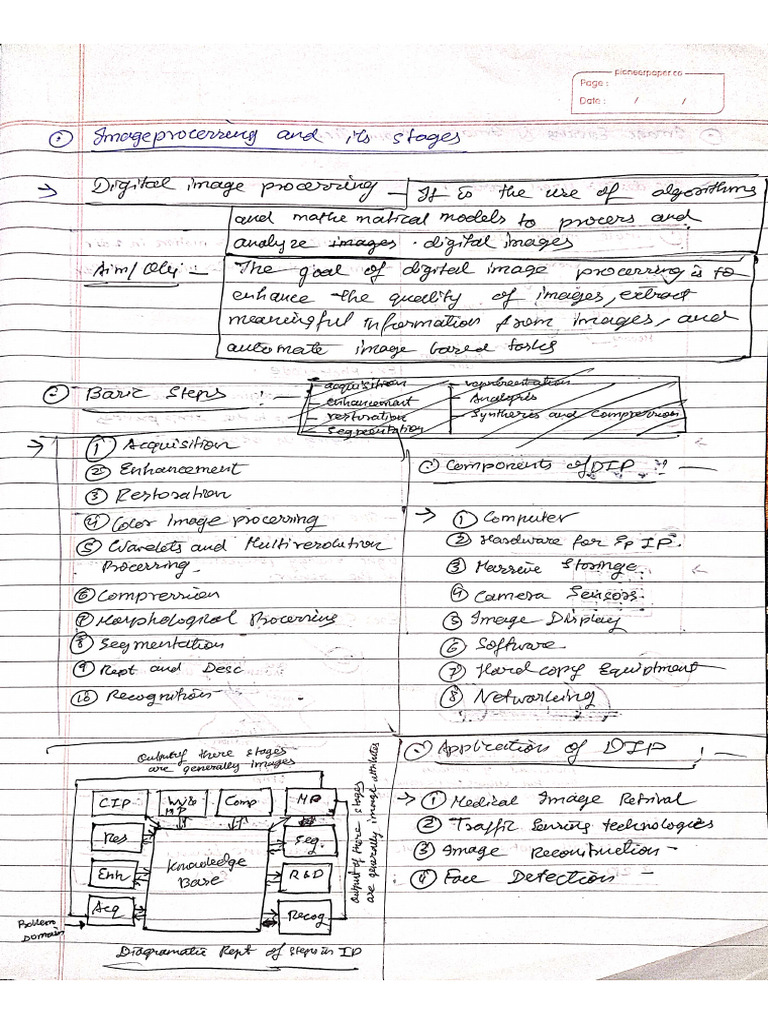 pioneerpaper.co
Page :
Date : / /
Image processing and its stages
→ Digital image processing — It is the use of algorithms
and mathematical models to process and
analyze images . digital images
Aim/Obj — The goal of digital image processing is to
enhance the quality of images, extract
meaningful information from images, and
automate image based tasks
Basic Steps : —
- acquisition
- enhancement
- restoration
- segmentation
- representation
- Analysis
- Synthesis and Compression
→ ① Acquisition
② Enhancement
③ Restoration
④ Color Image processing
⑤ Wavelets and Multiresolution
Processing
⑥ Compression
⑦ Morphological Processing
⑧ Segmentation
⑨ Rept and Desc
⑩ Recognition
Components of DIP : —
→ ① Computer
② Hardware for IP
③ Massive Storage
④ Camera Sensors
⑤ Image Display
⑥ Software
⑦ Hard copy Equiptment
⑧ Networking
Output of these stages
are generally images
CIP
Comp
MP
Res
Enh
Acq
Knowledge
Base
Seg.
R&D
Recog
Output of these stages
are generally image attributes
Problem
Domain
Diagramatic Rept of steps in IP
Application of DIP : —
→ ① Medical Image Retrival
② Traffic Sensing technologies
③ Image Reconstruction
④ Face Detection